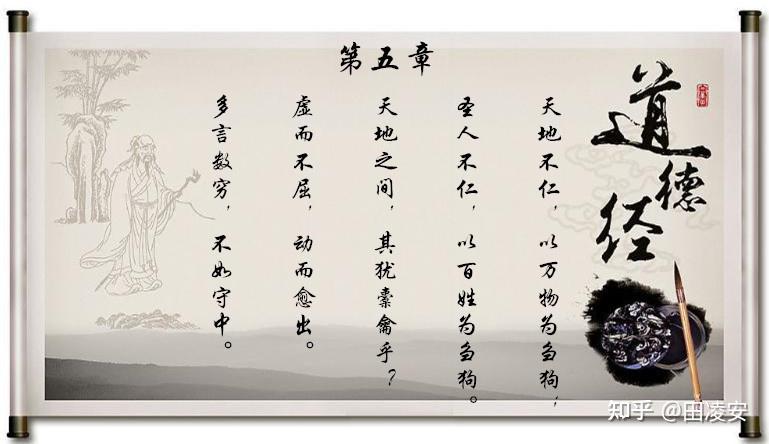 道德经
第五章
天地不仁，以万物为刍狗，
圣人不仁，以百姓为刍狗。
天地之间，其犹橐龠乎？
虚而不屈，动而愈出。
多言数穷，不如守中。
知乎 @田凌安